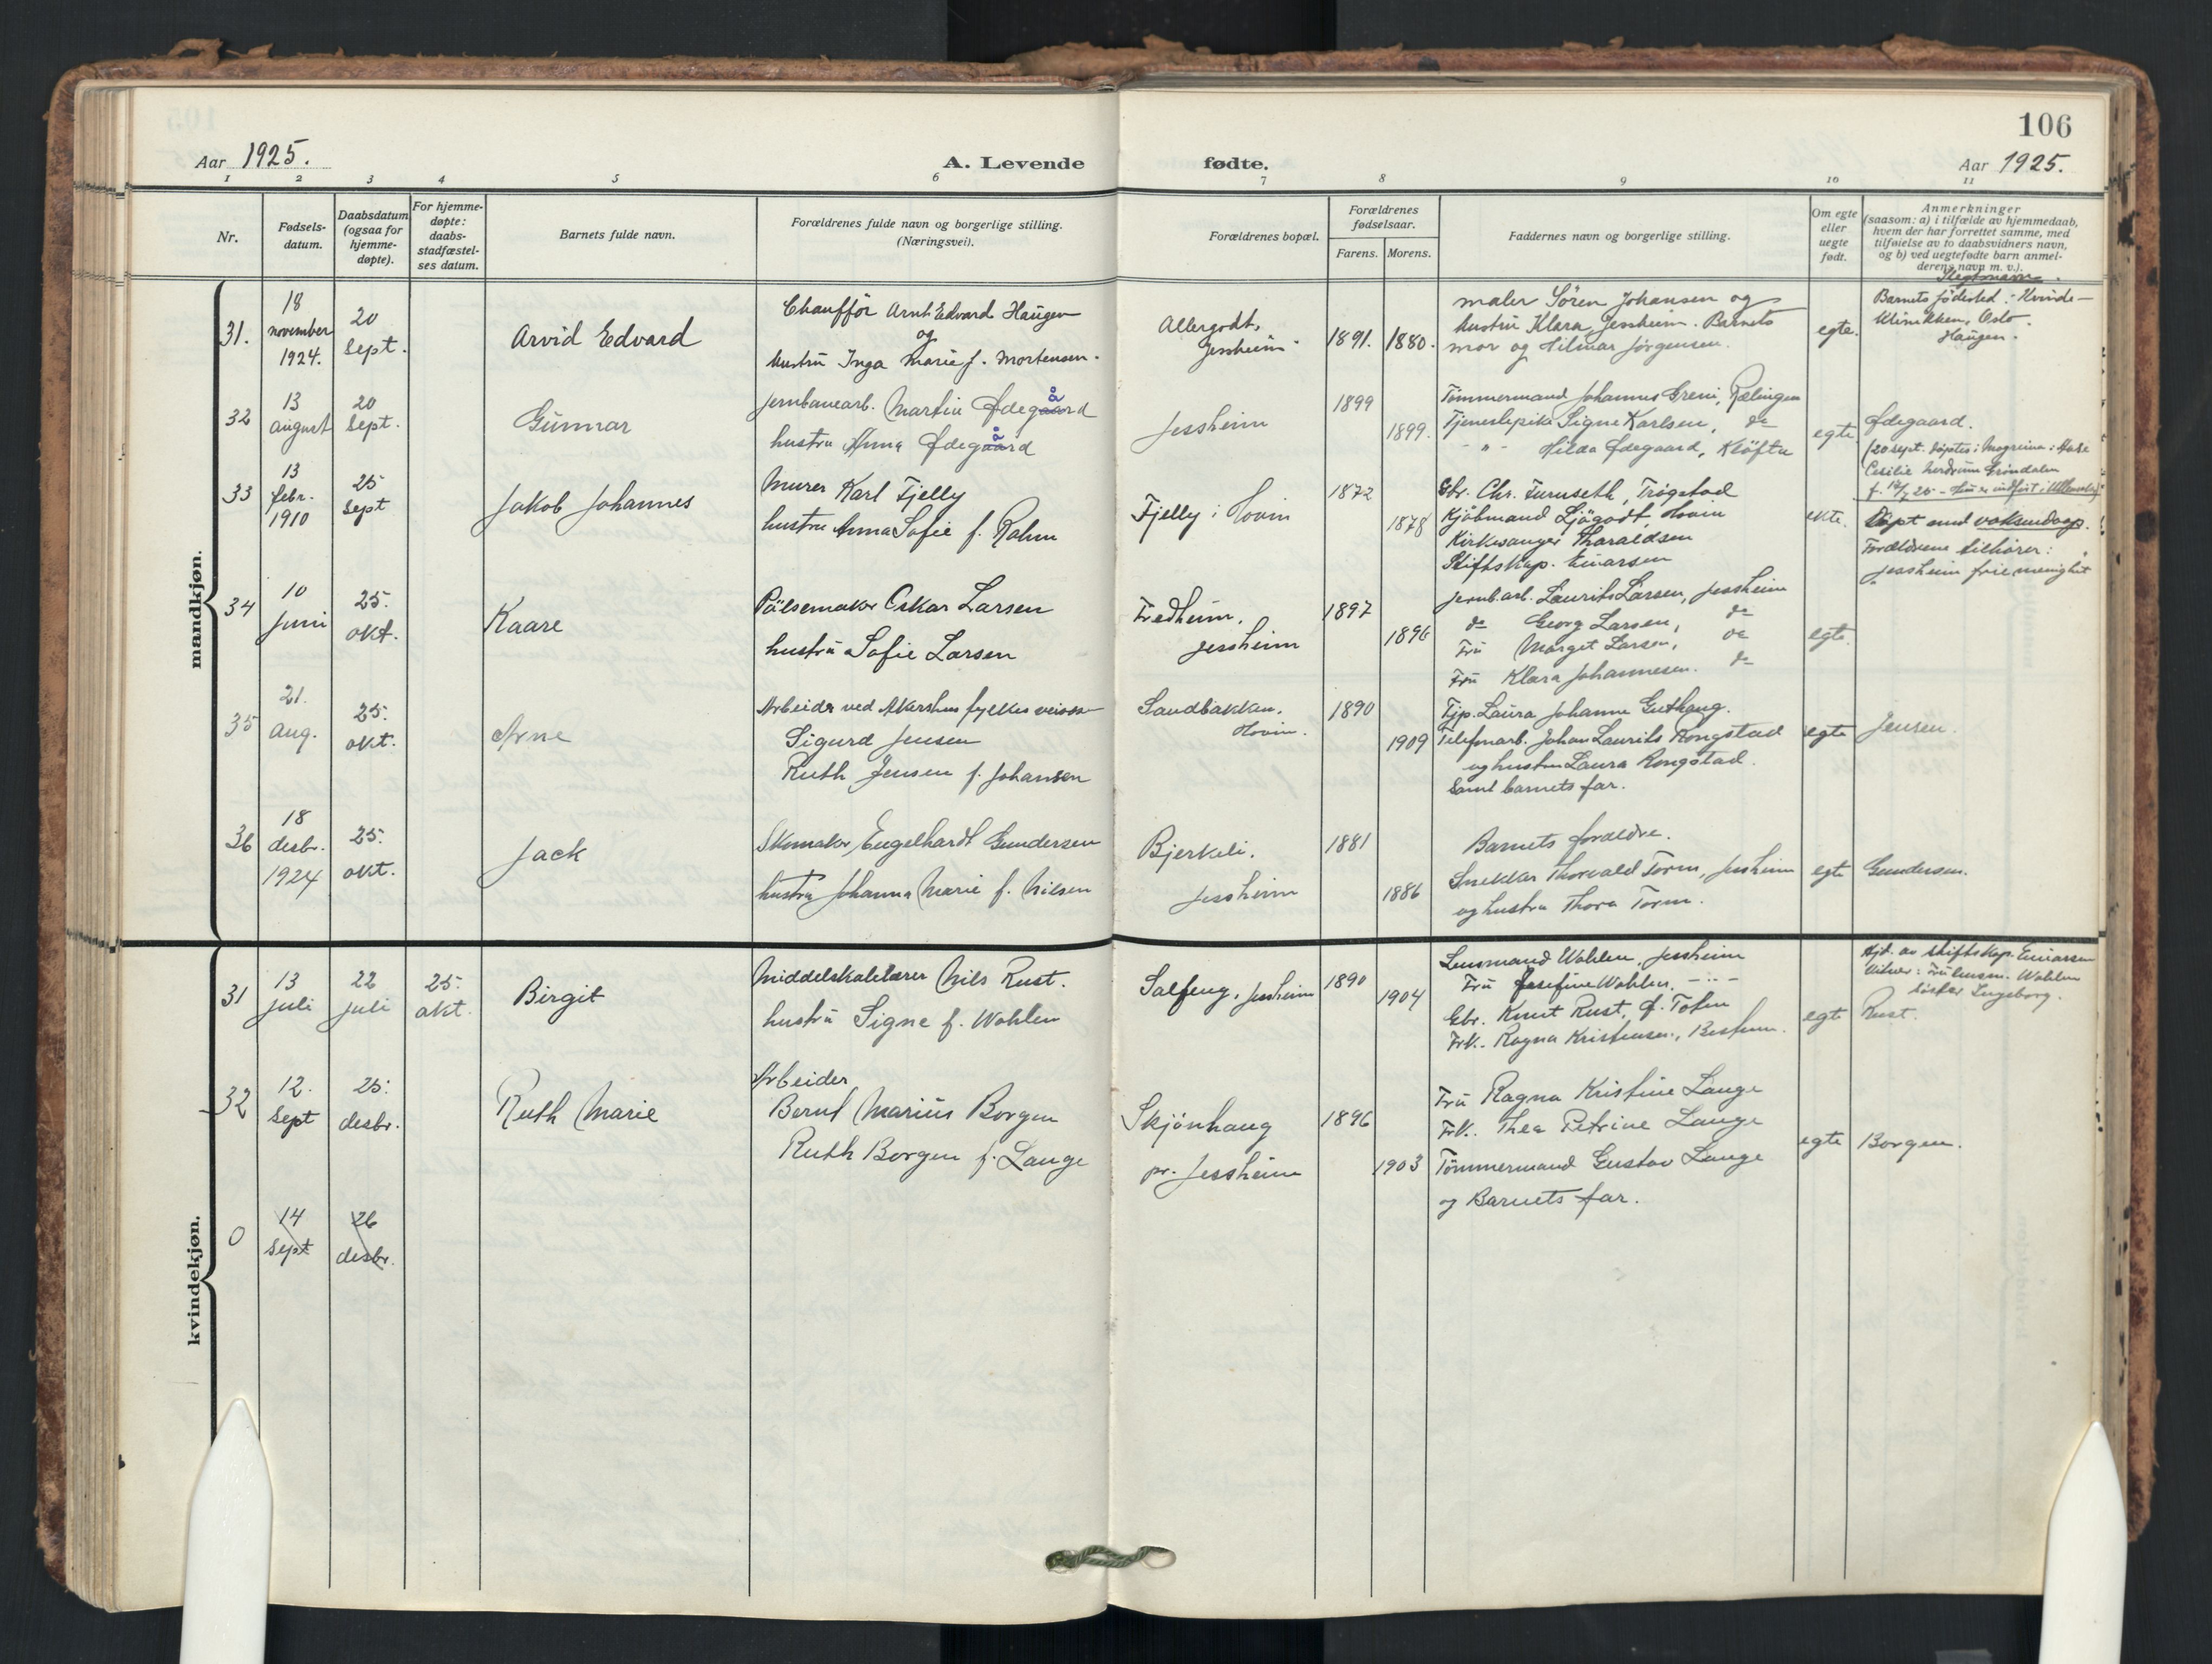 106
Aar 1925.
A. Levende fødte.
Aar 1925.
1 2 3 4 5 6 7 8 9 10 11
Nr.
Fødsels-
datum.
Daabsdatum
(ogsaa for
hjemme-
døpte).
For hjemme-
døpte:
daabs-
stadfæstel-
ses datum.
Barnets fulde navn.
Forældrenes fulde navn og borgerlige stilling.
(Næringsvei).
Forældrenes bopæl.
Forældrenes
fødselsaar.
Farens. Morens.
Faddernes navn og borgerlige stilling.
Om egte
eller
uegte
født.
Anmerkninger
(saasom: a) i tilfælde av hjemmedaab,
hvem der har forrettet samme, med
tilføielse av to daabsvidners navn,
og b) ved uegtefødte barn anmel-
derens navn m. v.).
mandkjøn.
31.
18
november
1924.
20
Sept.
Arvid Edvard
Chauffør Arnt Edvard Haugen
og
hustru Inga Marie f. Mortensen.
Allergodt,
Jessheim.
1891. 1880.
maler Sören Johansen og
hustru Klara, Jessheim. Barnets
mor og Hilmar Jørgensen.
egte.
Barnets födested: Kvinde-
klinikken, Oslo.
Haugen.
32
13
august
20
Sept.
Gunnar
jernbanearb. Martin Ødegaard
å
hustru Anna Ødegaard
å
Jessheim
1899
1899.
Tømmermand Johannes Greni, Rælingen
Tjenestepike Signe Karlsen, do
- " - Hilda Ødegaard, Kløfta
egte
Ødegaard.
33
13
febr.
1910
25
Sept
Jakob Johannes
Murer Karl Fjelly
hustru Anna Sofie f. Rahm
Fjelly i Hovin
1872
1878
Gbr. Chr. Furuseth, Trøgstad
Kjøbmand Ljøgodt, Hovin
Kirkesanger Tharaldsen
Stiftskap. Einarsen
ekte.
(20 sept. døptes i Mogreina:
Cecilie
Døpt med voksendaap.
Forældrene tilhører:
Jessheim frie menighet
34
10
Juni
25.
okt.
Kaare
Pölsemaker Oskar Larsen
hustru Sofie Larsen
Fredheim,
Jessheim
1897
1896
Jernb.arb. Laurits Larsen, Jessheim
do Georg Larsen, do
Fru Marget Larsen, do
Fru Klara Johannesen. do
egte.
35
21.
aug.
25.
okt.
Arne
Arbeider ved Akershus fylkes
Sigurd Jensen
Ruth Jensen f. Johansen
Sandbakken,
Hovin.
1890
1909
Tjp. Laura Johanne Guthaug.
Telefonarb. Johan Laurits Rongstad
og hustru Laura Rongstad.
Samt barnets far.
egte
Jensen.
36
18
desbr.
1924
25.
okt.
Jack
Skomaker Engelhardt Gundersen
hustru Johanna Marie f. Nilsen
Bjerkeli,
Jessheim
1881
1886
Barnets foraldre.
Snekker Thorvald Torm, Jessheim
og hustru Thora Torm.
egte
Gundersen.
kvindekjøn.
31
13
juli
22
juli
25.
okt.
Birgit
Middelskolelærer Nils Rust.
hustru Signe f. Wohlen
Salfeng, Jessheim
1890
1904
Lensmand Wohlen, Jessheim
Fru Josefine Wohlen. -"-
Gbr. Knut Rust, Ø. Toten
Frk. Ragna Kristensen,
egte
Hjd. av stiftskap. Einarsen
Vidner: Fru lensm. Wohlen
søster Ingeborg.
Rust.
32
12.
Sept
25.
desbr.
Ruth Marie
Arbeider
Bernt Marius Borgen
Ruth Borgen f. Lange
Skjönhaug
pr. Jessheim
1896
1903
Fru Ragna Kristine Lange
Frk. Thea Petrine Lange
Tömmermand Gustav Lange
og Barnets far.
egte
Borgen.
0
14
Sept
26
desbr.